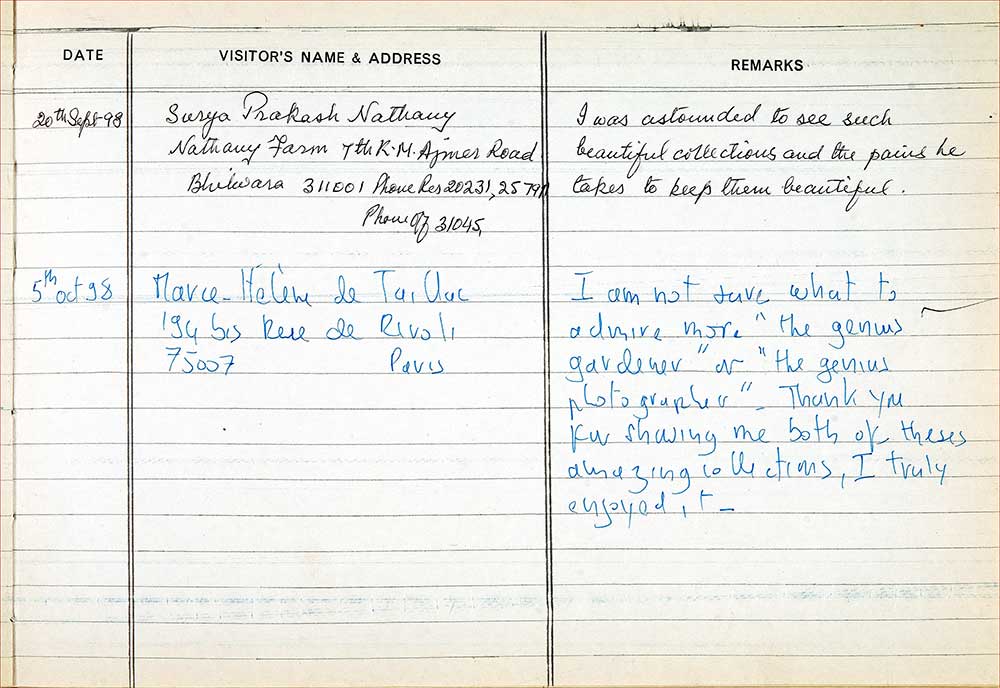 DATE
VISITOR'S NAME & ADDRESS
REMARKS
20th Sept-98
Surya Prakash Nathany
Nathany Farm 7th K.M. Ajmer Road
Bhilwara 311001 Phone Res 20231, 25791
Phone Off 31045,
I was astounded to see such
beautiful collections and the pains he
takes to keep them beautiful.
5th oct 98
Marie-Hélène de Taillac
194 bis Rue de Rivoli
75007 Paris
I am not sure what to
admire more "the genius
gardener" or "the genius
photographer" - Thank you
for showing me both of theses
amazing collections, I truly
enjoyed it -